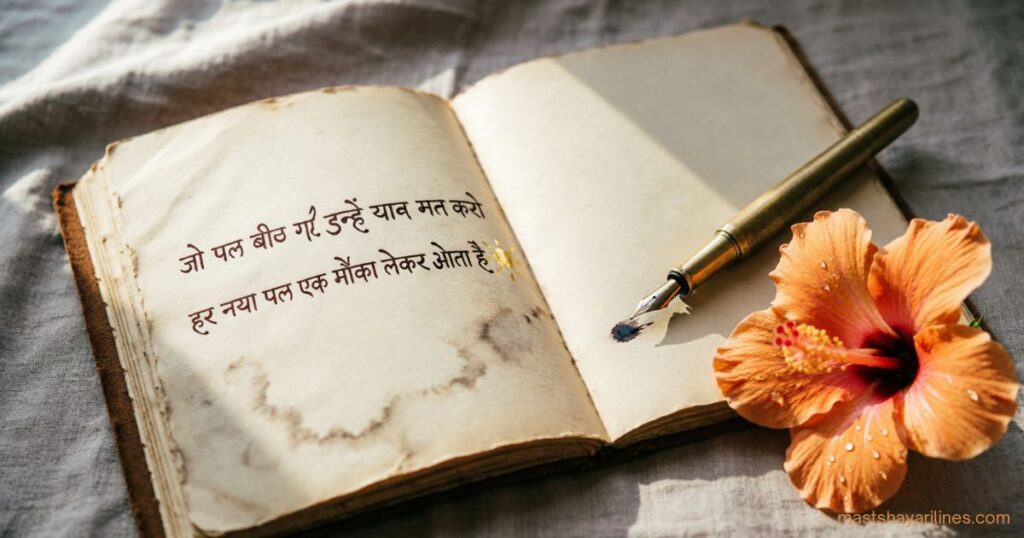 जो पल बीठ डन्हें याव मत करो
हर नया पल एक मौका लेकर ओता है
mastshayarilines.com